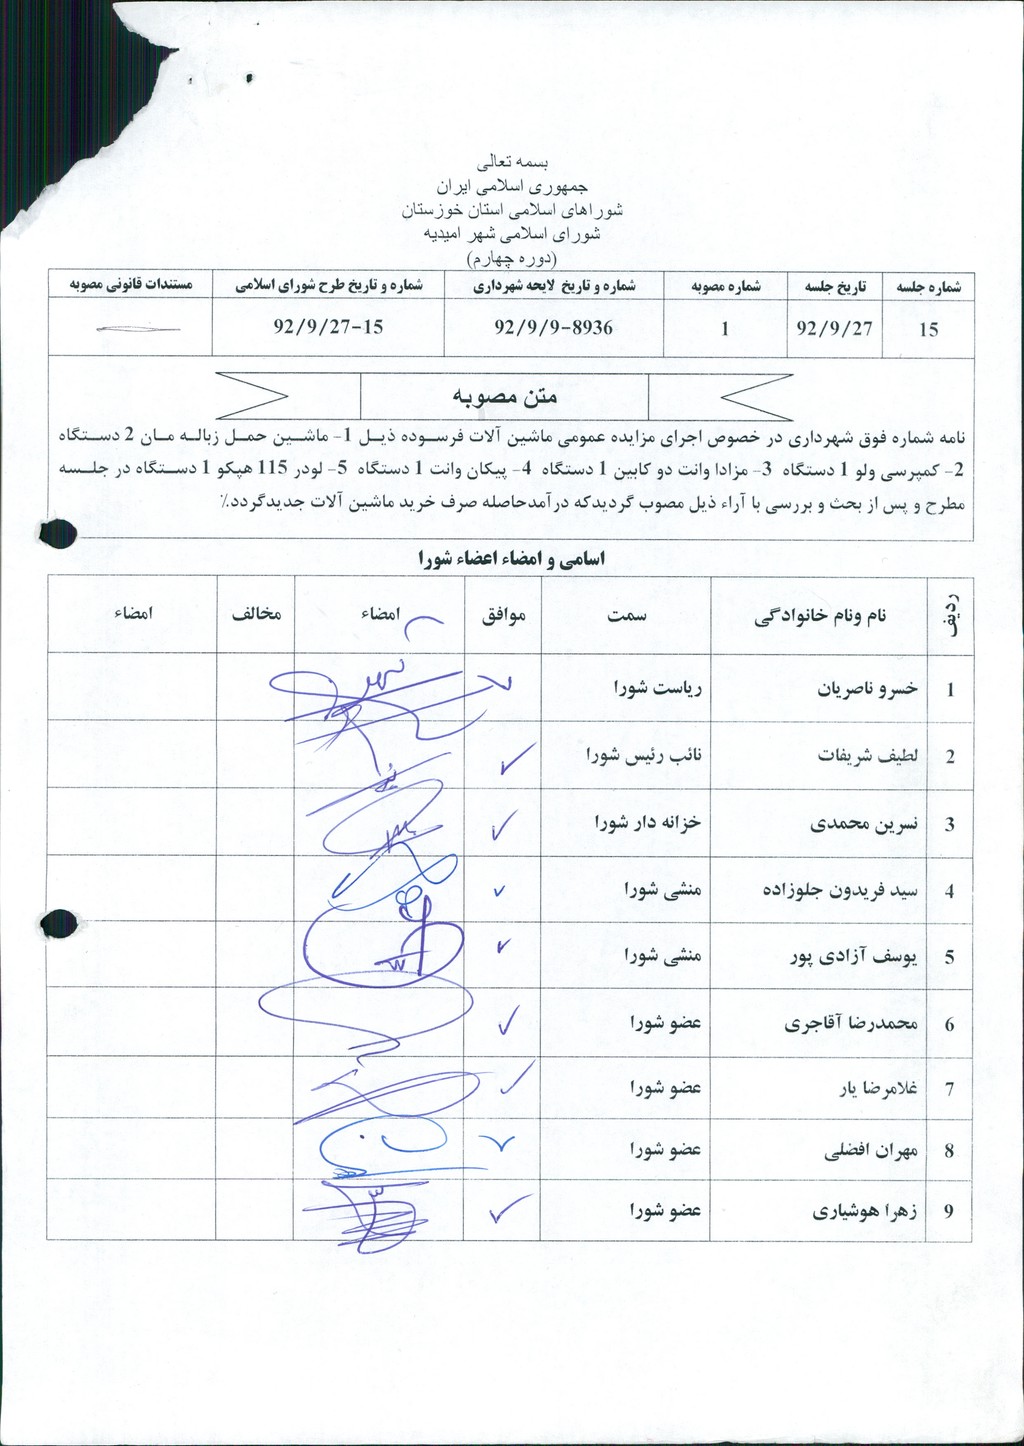 بسمه تعالی
جمهوری اسلامی ایران
شوراهای اسلامی استان خوزستان
شورای اسلامی شهر امیدیه
(دوره چهارم)
شماره جلسه تاریخ جلسه شماره مصوبه شماره و تاریخ لایحه شهرداری شماره و تاریخ طرح شورای اسلامی مستندات قانونی مصوبه
15 92/9/27 1 92/9/9-8936 92/9/27-15
متن مصوبه
نامه شماره فوق شهرداری در خصوص اجرای مزایده عمومی ماشین آلات فرسوده ذیل 1- ماشین حمل زباله مان 2 دستگاه
2- کمپرسی ولو 1 دستگاه 3- مزادا وانت دو کابین 1 دستگاه 4- پیکان وانت 1 دستگاه 5- لودر 115 هپکو 1 دستگاه در جلسه
مطرح و پس از بحث و بررسی با آراء ذیل مصوب گردیدکه درآمدحاصله صرف خرید ماشین آلات جدیدگردد.٪
اسامی و امضاء اعضاء شورا
ردیف نام ونام خانوادگی سمت موافق امضاء مخالف امضاء
1 خسرو ناصریان ریاست شورا
2 لطیف شریفات نائب رئیس شورا
3 نسرین محمدی خزانه دار شورا
4 سید فریدون جلوزاده منشی شورا
5 یوسف آزادی پور منشی شورا
6 محمدرضا آقاجری عضو شورا
7 غلامرضا یار عضو شورا
8 مهران افضلی عضو شورا
9 زهرا هوشیاری عضو شورا